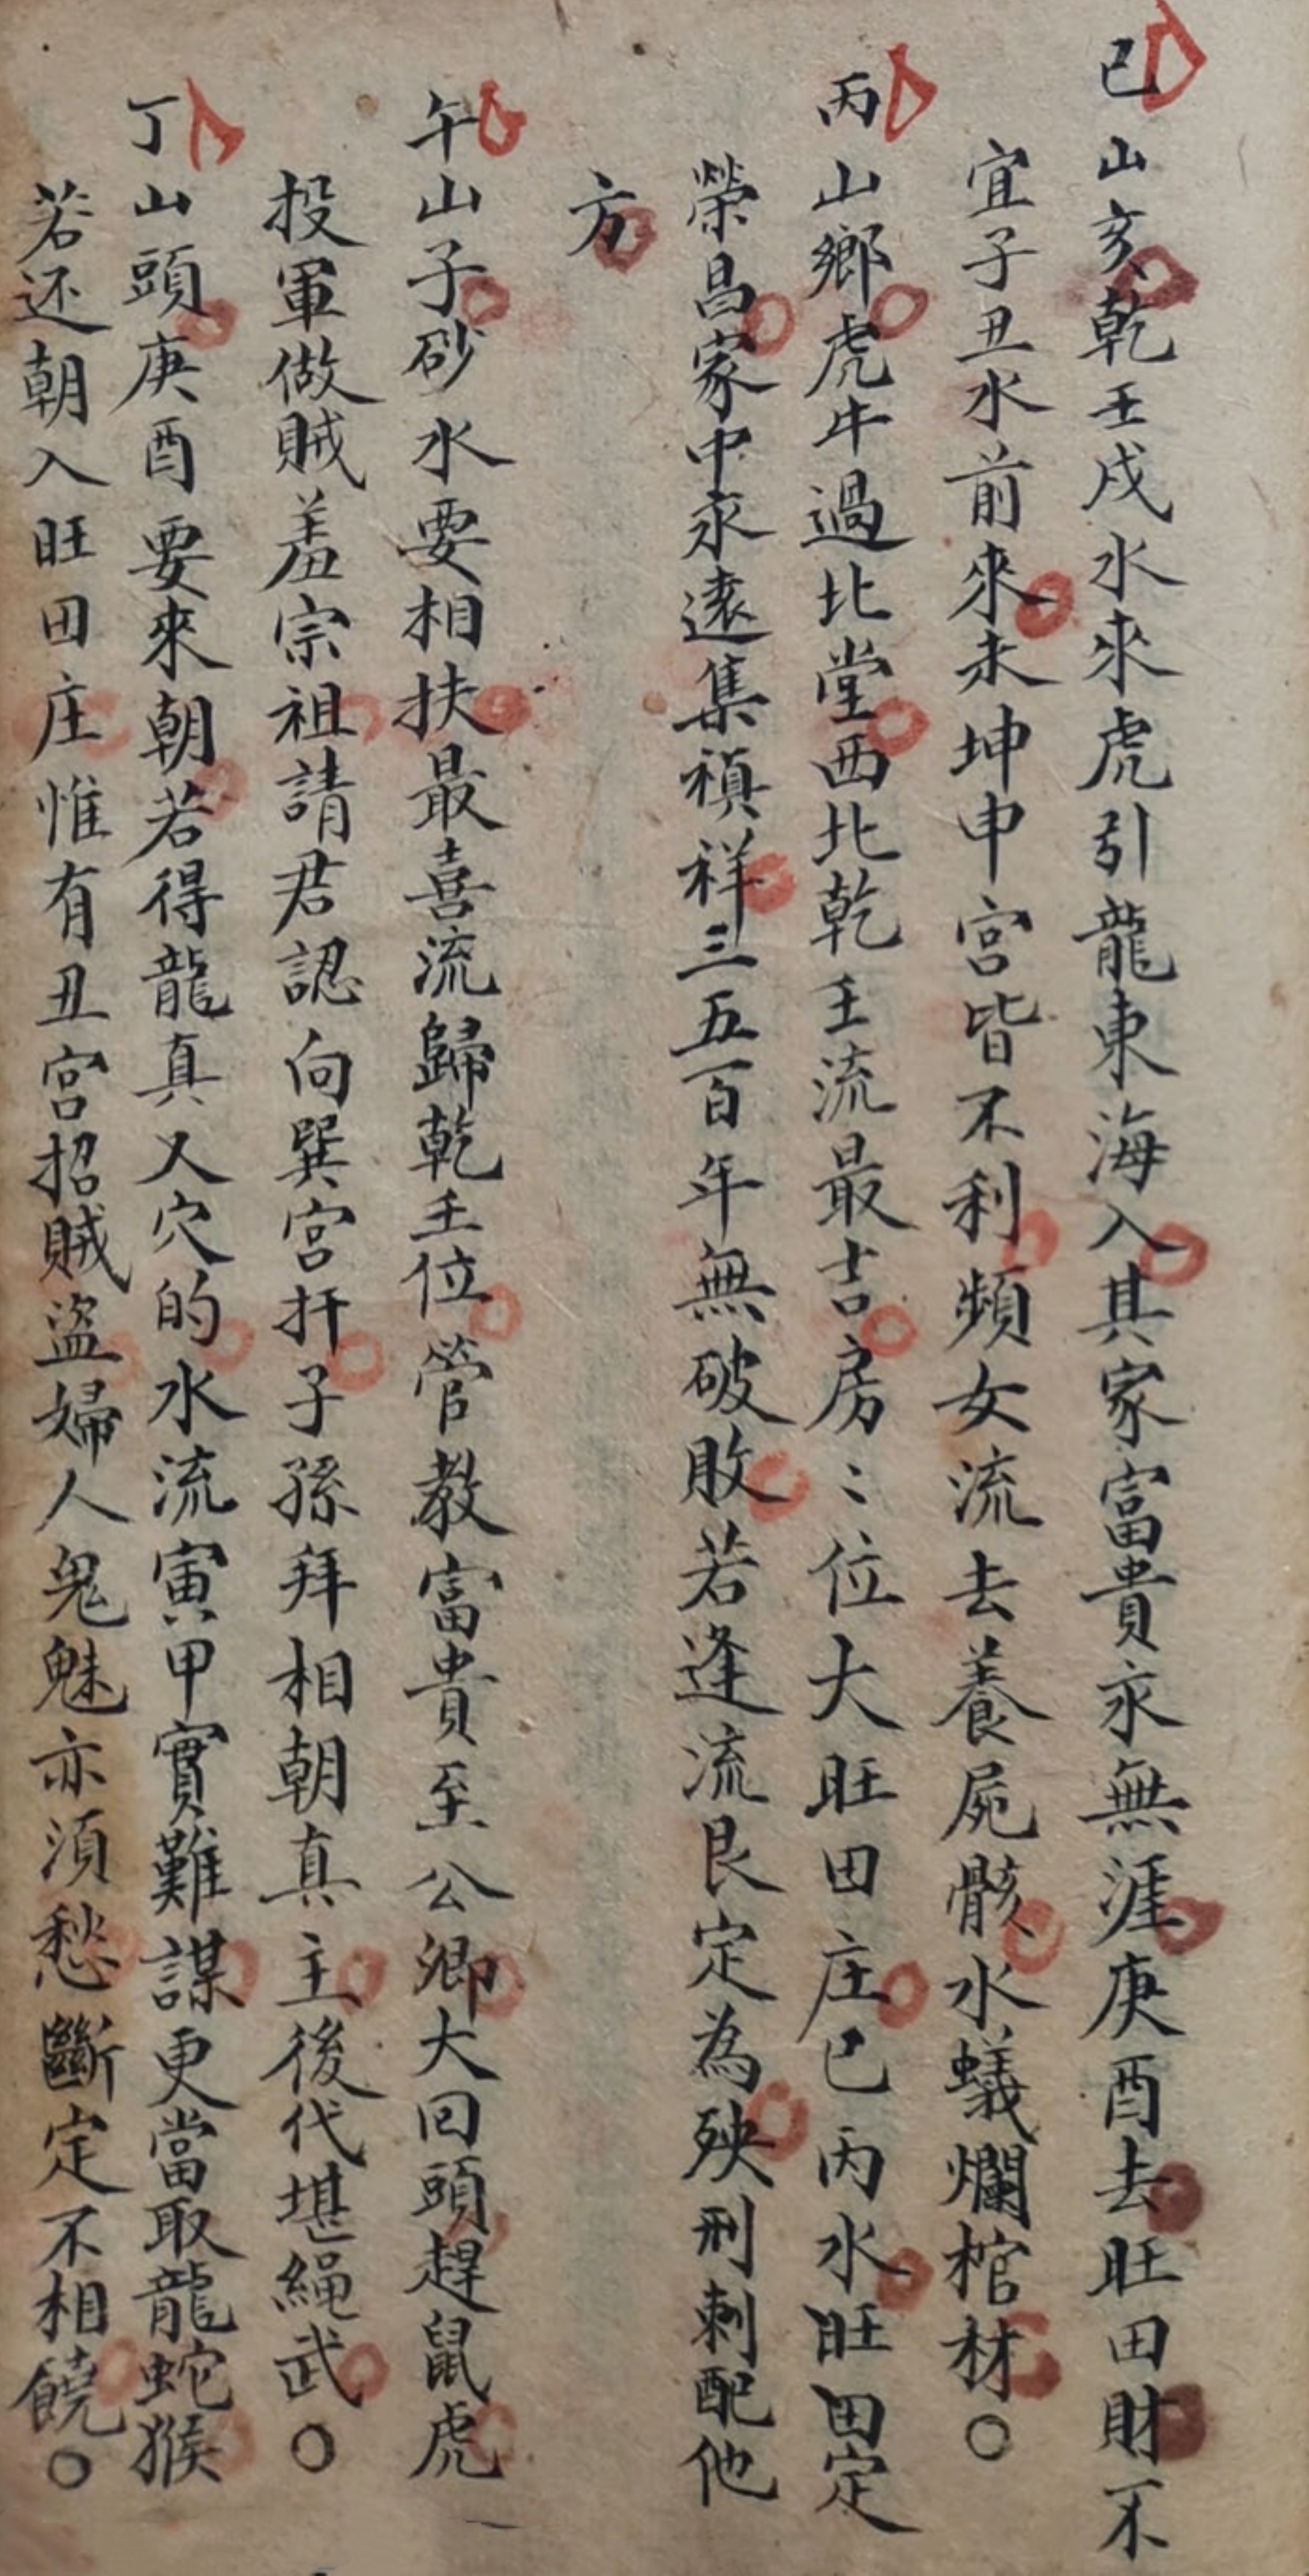 巳山亥乾壬戌水來虎引龍東海入其家富貴永無涯庚酉去旺田財不
宜子丑水前來未坤申宮皆不利頻女流去養屍骸水蟻爛棺材○
丙山鄉虎牛過北堂西北乾壬流最吉房〻位大旺田庄巳丙水旺田定
榮昌家中永遠集禎祥三五百年無破敗若逢流艮定為殃刑刺配他
方
午山子砂水要相扶最喜流歸乾壬位管教富貴至公卿大回頭趕鼠虎
投軍做賊羞宗祖請君認向巽宮扦子孫拜相朝真主後代堪繩武○
丁山頭庚酉要來朝若得龍真又穴的水流寅甲實難謀更當取龍蛇猴
若还朝入旺田庄惟有丑宮招賊盜婦人鬼魅亦須愁斷定不相饒○